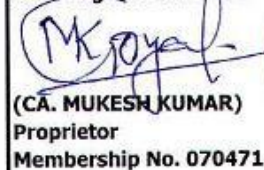 MKGoyal
(CA. MUKESH KUMAR)
Proprietor
Membership No. 070471